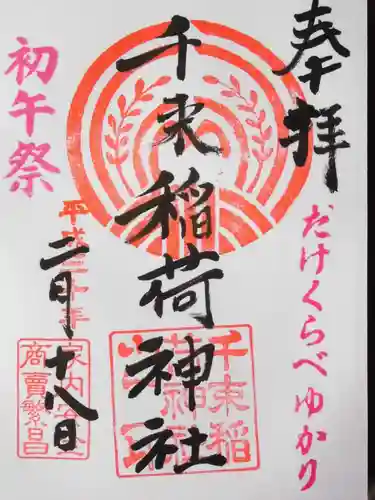 奉拝
だけくらべゆかり
千束稲荷神社
初午祭
平成三十年
二月十八日
家内安全
商賣繁昌